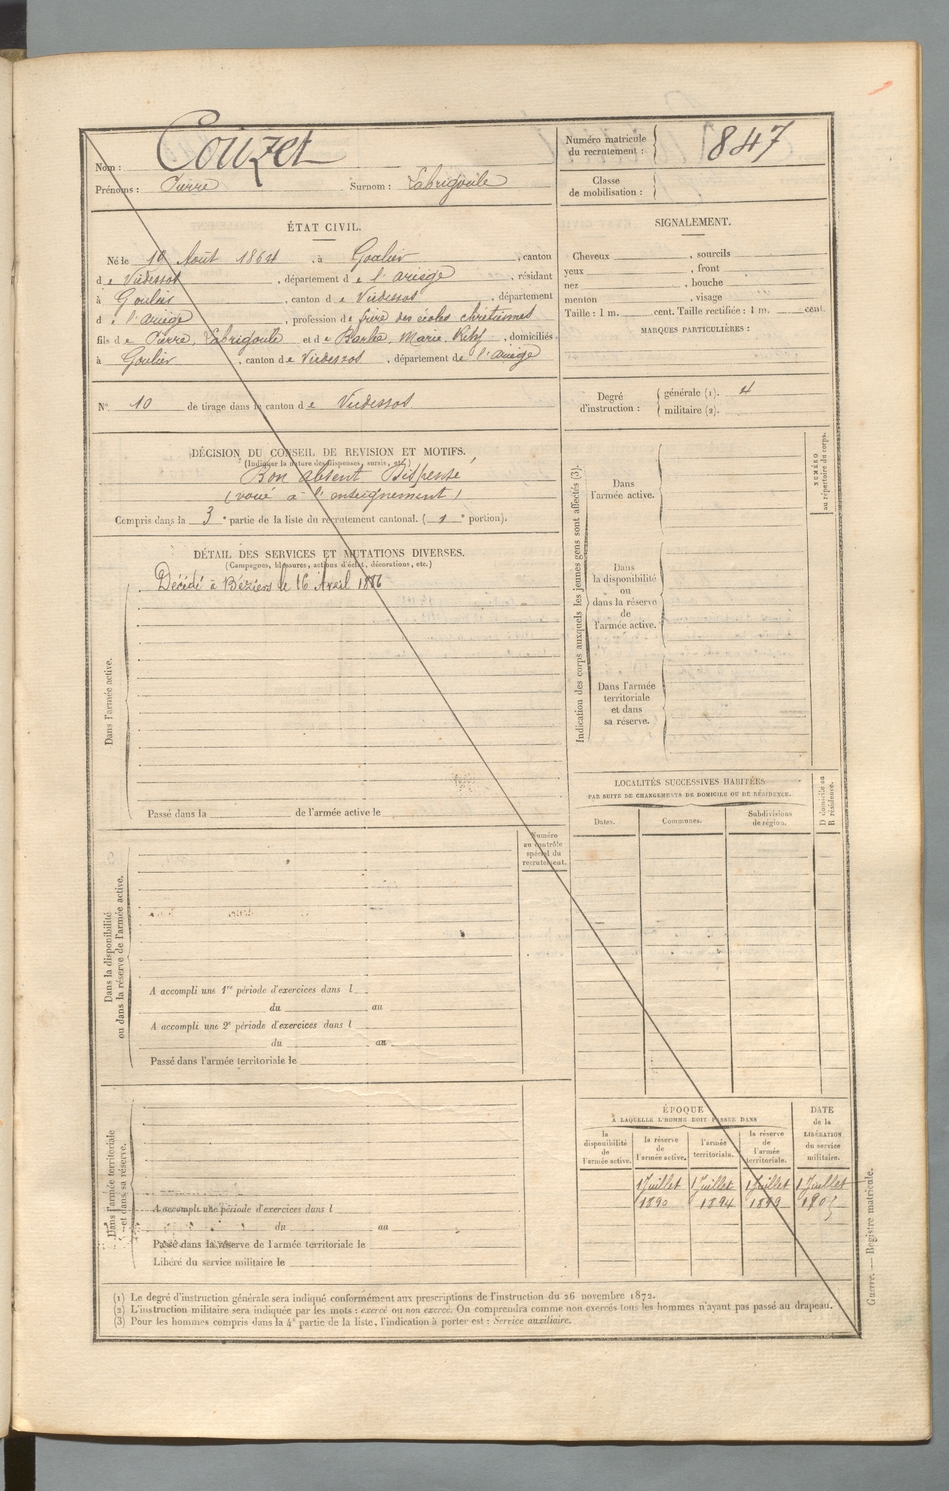 Nom : Couzet
Prénoms : Pierre Surnom : Labrigoule
Numéro matricule du recrutement : 847
Classe de mobilisation :
ÉTAT CIVIL.
Né le 19 Août 1864, à Goulier, canton
de Vicdessos, département de l'Ariège, résidant
à Goulier, canton de Vicdessos, département
de l'Ariège, profession de frère des écoles chrétiennes
fils de Pierre, Labrigoule et de Barbe, Marie, domiciliés
à Goulier, canton de Vicdessos, département de l'Ariège
SIGNALEMENT.
Cheveux , sourcils
yeux , front
nez , bouche
menton , visage
Taille : 1 m. cent. Taille rectifiée : 1 m. cent.
MARQUES PARTICULIÈRES :
N° 10 de tirage dans le canton de Vicdessos
Degré d'instruction : générale (1). 4
militaire (2).
DÉCISION DU CONSEIL DE REVISION ET MOTIFS.
(Indiquer la nature des dispenses, sursis, etc.)
Bon absent Dispensé
(voué à l'enseignement)
Compris dans la 3e partie de la liste du recrutement cantonal. (1e portion).
DÉTAIL DES SERVICES ET MUTATIONS DIVERSES.
(Campagnes, blessures, actions d'éclat, décorations, etc.)
Décédé à Béziers le 16 Avril 1886
Dans l'armée active.
Passé dans la de l'armée active le
Indication des corps auxquels les jeunes gens sont affectés (3).
Dans l'armée active.
Dans la disponibilité ou dans la réserve de l'armée active.
Dans l'armée territoriale et dans sa réserve.
NUMÉRO au répertoire du corps.
LOCALITÉS SUCCESSIVES HABITÉES
PAR SUITE DE CHANGEMENTS DE DOMICILE OU DE RÉSIDENCE.
Dates. Communes. Subdivisions de région.
D domicile ou R résidence.
Numéro au contrôle spécial du recrutement.
Dans la disponibilité ou dans la réserve de l'armée active.
A accompli une 1re période d'exercices dans l
du au
A accompli une 2e période d'exercices dans l
du au
Passé dans l'armée territoriale le
Dans l'armée territoriale et dans sa réserve.
A accompli une période d'exercices dans l
du au
Passé dans la réserve de l'armée territoriale le
Libéré du service militaire le
ÉPOQUE
À LAQUELLE L'HOMME DOIT PASSER DANS
la disponibilité de l'armée active.
la réserve de l'armée active.
l'armée territoriale.
la réserve de l'armée territoriale.
DATE de la LIBÉRATION du service militaire.
1 Juillet 1 Juillet 1 Juillet 1 Juillet
1890 1894 1899 1905
(1) Le degré d'instruction générale sera indiqué conformément aux prescriptions de l'instruction du 26 novembre 1872.
(2) L'instruction militaire sera indiquée par les mots : exercé ou non exercé. On comprendra comme non exercés tous les hommes n'ayant pas passé au drapeau.
(3) Pour les hommes compris dans la 4e partie de la liste, l'indication à porter est : Service auxiliaire.
Guerre. — Registre matricule.